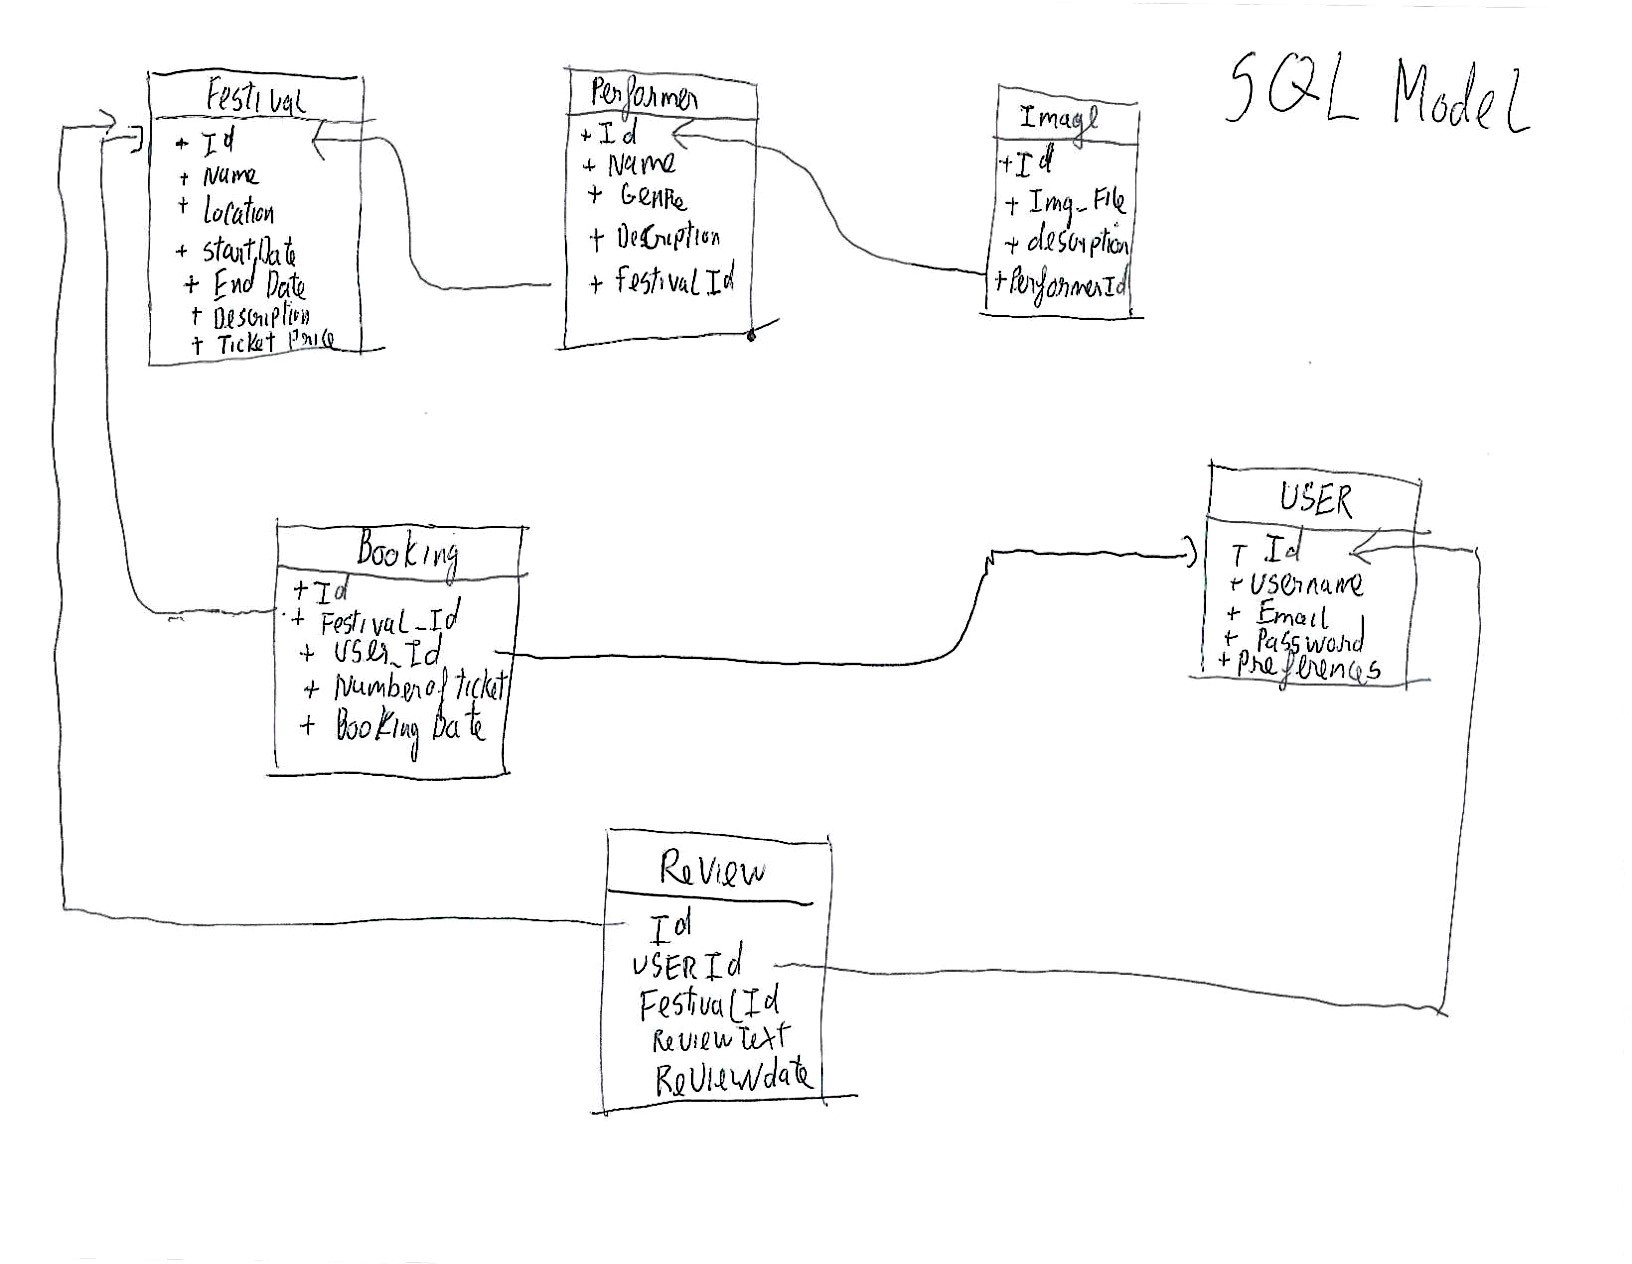 SQL Model
Festival
+ Id
+ Name
+ Location
+ Start Date
+ End Date
+ Description
+ Ticket Price
Performer
+ Id
+ Name
+ Genre
+ Description
+ Festival Id
Image
+ Id
+ Img_File
+ description
+ Performer Id
Booking
+ Id
+ Festival_Id
+ User_Id
+ Number of ticket
+ Booking Date
USER
+ Id
+ Username
+ Email
+ Password
+ Preferences
Review
Id
USER Id
Festival Id
Review Text
Review date